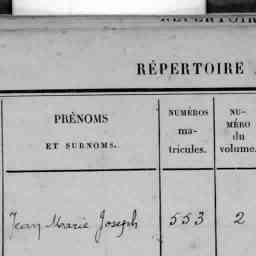 RÉPERTOIRE
PRÉNOMS
ET SURNOMS.
NUMÉROS
ma-
tricules.
NU-
MÉRO
du
volume.
Jean Marie Joseph 553 2